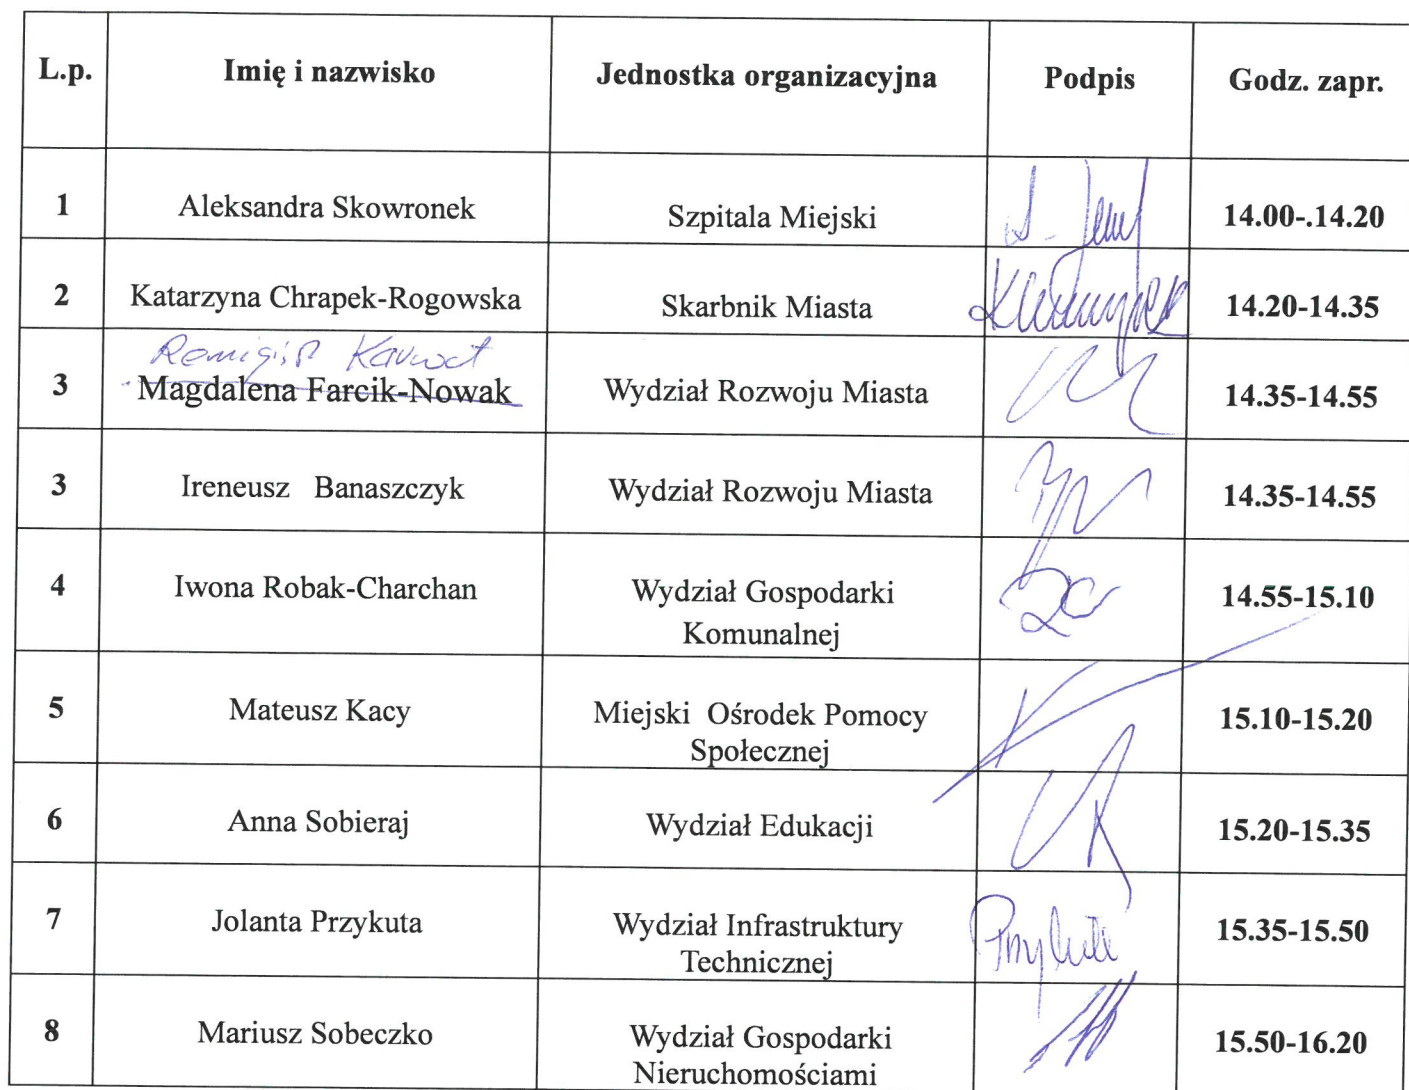 L.p. Imię i nazwisko Jednostka organizacyjna Podpis Godz. zapr.
1 Aleksandra Skowronek Szpitala Miejski 14.00-.14.20
2 Katarzyna Chrapek-Rogowska Skarbnik Miasta 14.20-14.35
Remigiusz
3 Magdalena Farcik-Nowak Wydział Rozwoju Miasta 14.35-14.55
3 Ireneusz Banaszczyk Wydział Rozwoju Miasta 14.35-14.55
4 Iwona Robak-Charchan Wydział Gospodarki 14.55-15.10
Komunalnej
5 Mateusz Kacy Miejski Ośrodek Pomocy 15.10-15.20
Społecznej
6 Anna Sobieraj Wydział Edukacji 15.20-15.35
7 Jolanta Przykuta Wydział Infrastruktury 15.35-15.50
Technicznej
8 Mariusz Sobeczko Wydział Gospodarki 15.50-16.20
Nieruchomościami